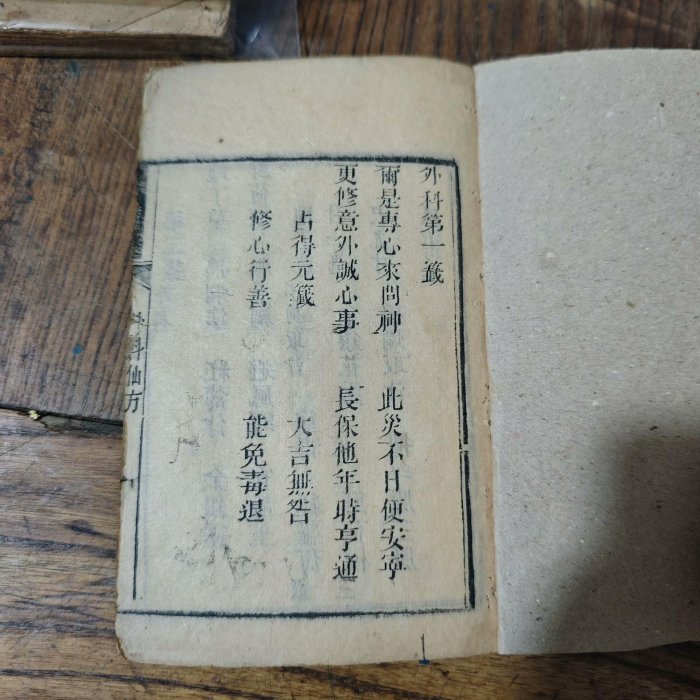 外科第一籤
爾是專心來問神　此災不日便安寧
更修意外誠心事　長保他年時亨通
占得元籤　大吉無咎
修心行善　能免毒退
外科仙方